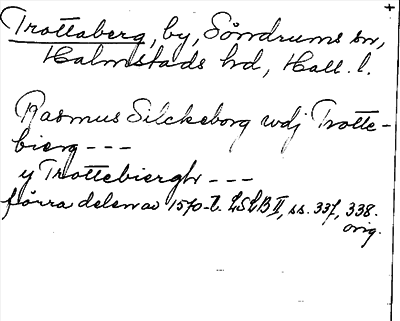 Trottaberg, by, Söndrums sn,
Halmstads hd, Hall. l.
Rasmus Silckeborg wdj Trotte-
bierg ---
y Trottebiergh ---
förra delen av 1570-t. LSLB II, ss. 337, 338.
orig.